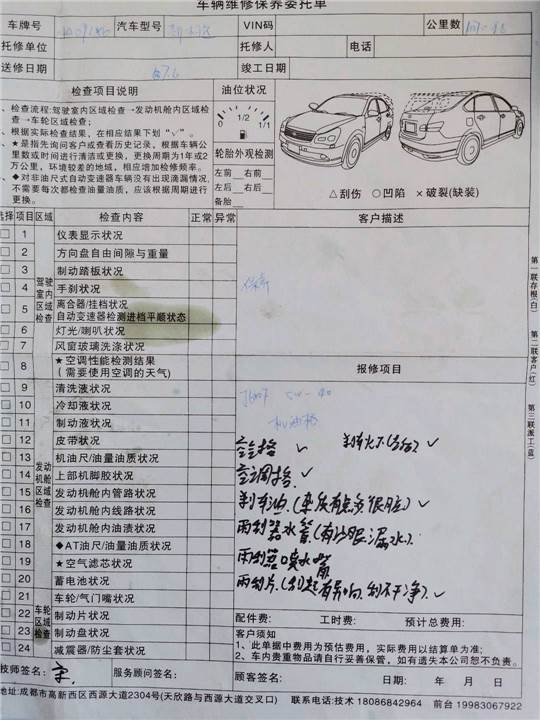 车辆维修保养委托单
车牌号 汽车型号 VIN码 公里数
托修单位 托修人 电话
送修日期 竣工日期
检查项目说明
、检查流程:驾驶室内区域检查→发动机舱内区域检
查→车轮区域检查;
、根据实际检查结果,在相应结果下划“√”。
、★是指先询问客户或查看历史记录,根据车辆公
里数或时间进行清洁或更换,更换周期为1年或2
万公里,环境较差的地域,相应增加检修频率。
、◆对非油尺式自动变速器车辆没有出现滴漏情况,
不需要每次都检查油量油质,应该根据周期进行
更换。
油位状况
0 1/2 1/1
轮胎外观检测
左前 右前
左后 右后
备胎
△刮伤 ○凹陷 ×破裂(缺装)
选择 项目 区域 检查内容 正常 异常 客户描述
驾驶室内区域检查
1 仪表显示状况
2 方向盘自由间隙与重量
3 制动踏板状况
4 手刹状况
5 离合器/挂档状况
自动变速器检测进档平顺状态
6 灯光/喇叭状况
7 风窗玻璃洗涤状况
8 ★空调性能检测结果
(需要使用空调的天气)
保养
报修项目
发动机舱区域检查
9 清洗液状况
10 冷却液状况
11 制动液状况
12 皮带状况
13 机油尺/油量油质状况
14 上部机脚胶状况
15 发动机舱内管路状况
16 发动机舱内线路状况
17 发动机舱内油渍状况
18 ◆AT油尺/油量油质状况
19 ★空气滤芯状况
20 蓄电池状况
车轮区域检查
21 车轮/气门嘴状况
22 制动片状况
23 制动盘状况
24 减震器/防尘套状况
5W-40
机油格
空气格 ✓
空调格 ✓
刹车油.(杂质有点多很脏) ✓
雨刮器水管(有沙眼漏水).
雨刮器喷水嘴
雨刮片.(刮起有异响,刮不干净). ✓
配件费: 工时费: 预计总费用:
客户须知
1、此单据中费用为预估费用,实际费用以结算单为准;
2、车内贵重物品请自行妥善保管,如有遗失本公司恕不负责。
技师签名: 服务顾问签名: 顾客签名: 日期: 年 月 日
地址:成都市高新西区西源大道2304号(天欣路与西源大道交叉口) 联系电话:技术 18086842964 前台 19983067922
第一联存根(白)
第二联客户(红)
第三联派工(蓝)